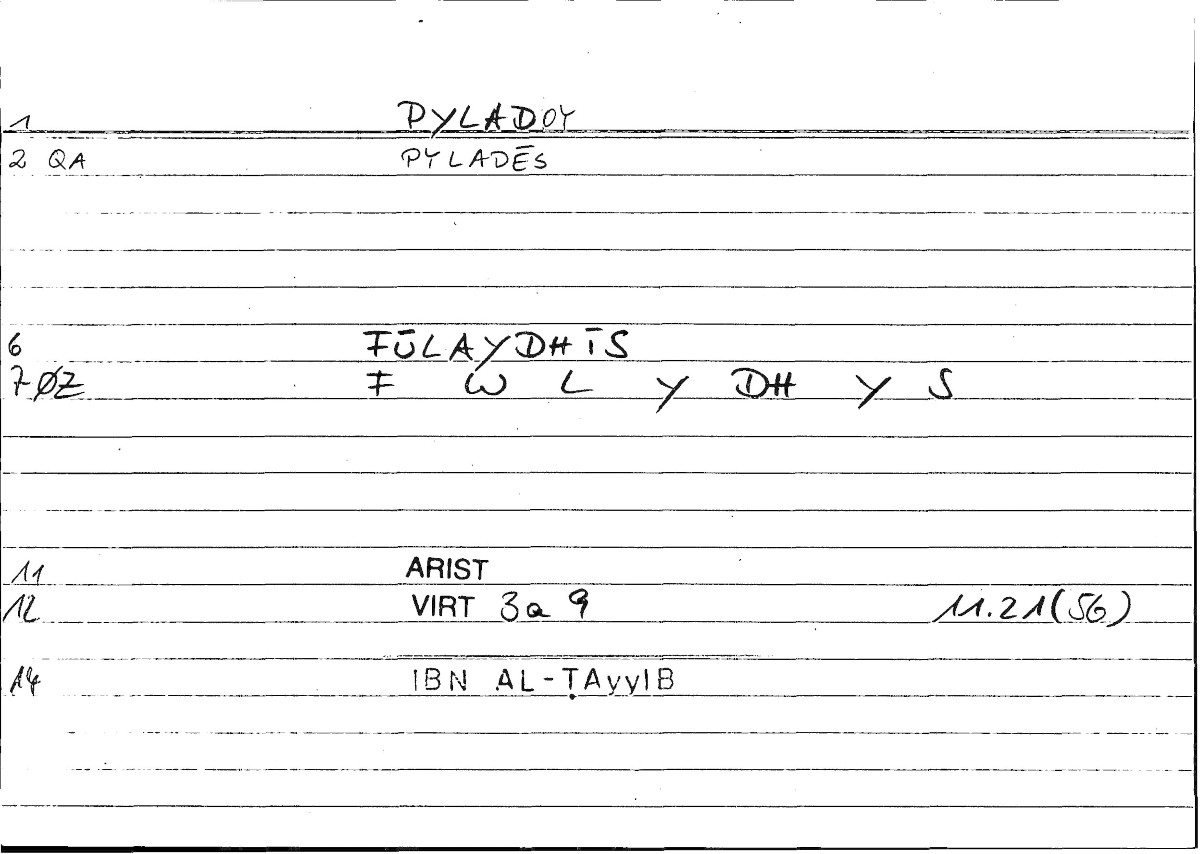 1 PYLADOY
2 QA PYLADĒS
6 FŪLAYDHĪS
7 ØZ F W L Y DH Y S
11 ARIST
12 VIRT 3a 9 11.21(56)
14 IBN AL-ṬAyyIB